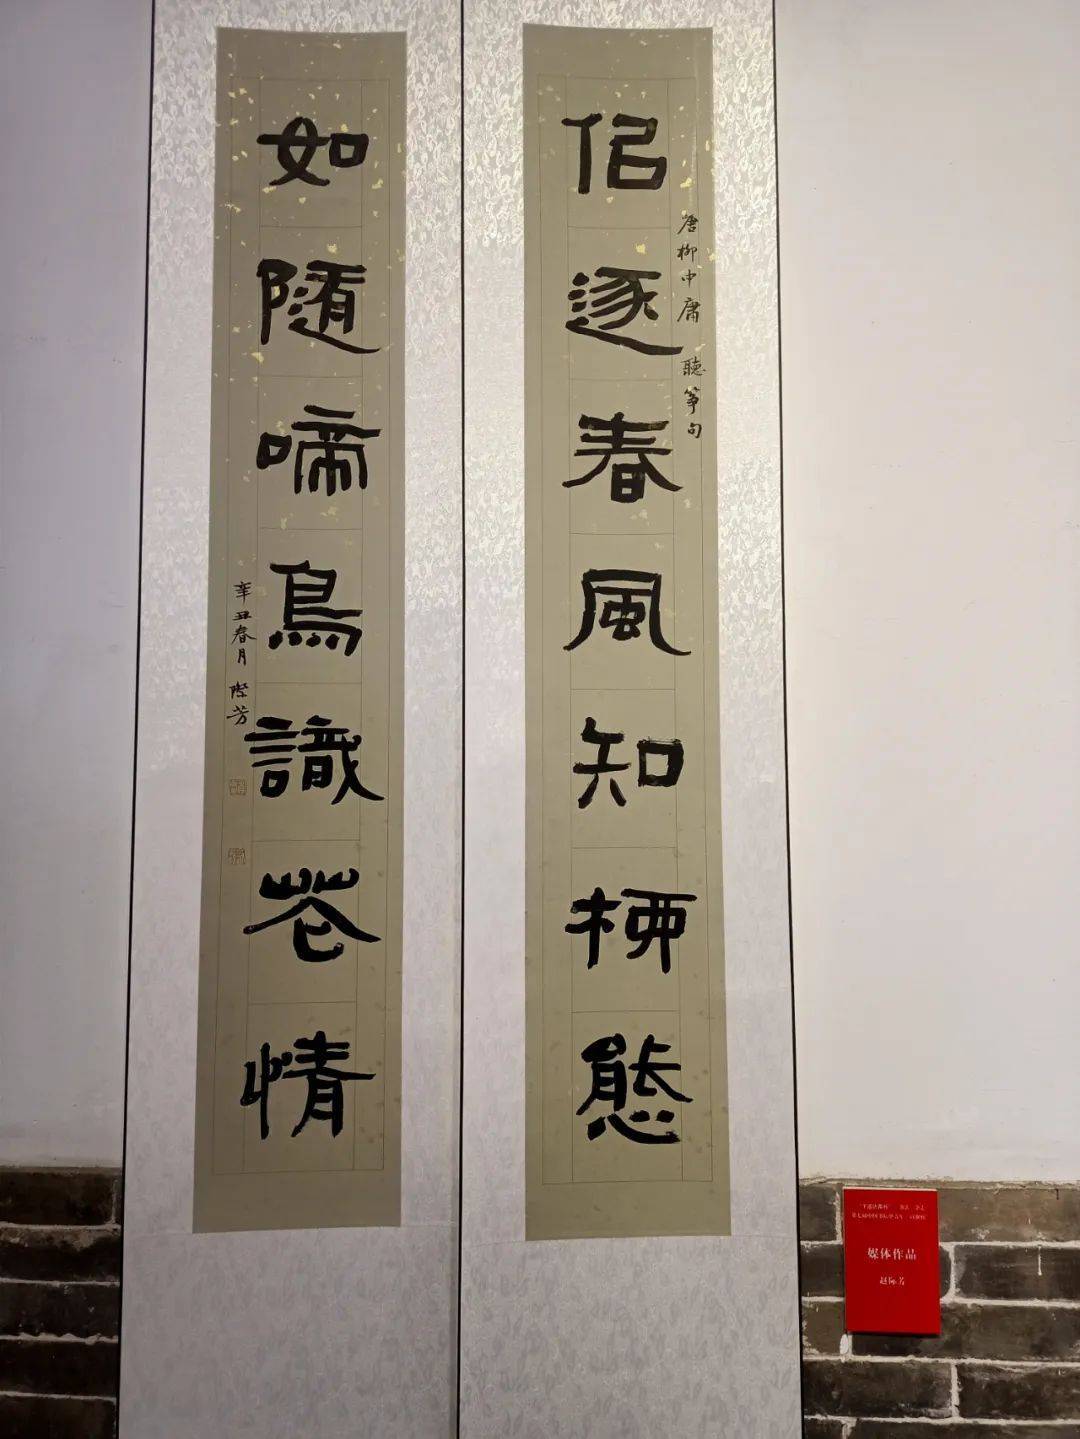 佀逐春風知桺態
唐柳中庸 聽筝句
如随啼鳥識花情
辛丑春月 際芳
媒体作品
赵际芳